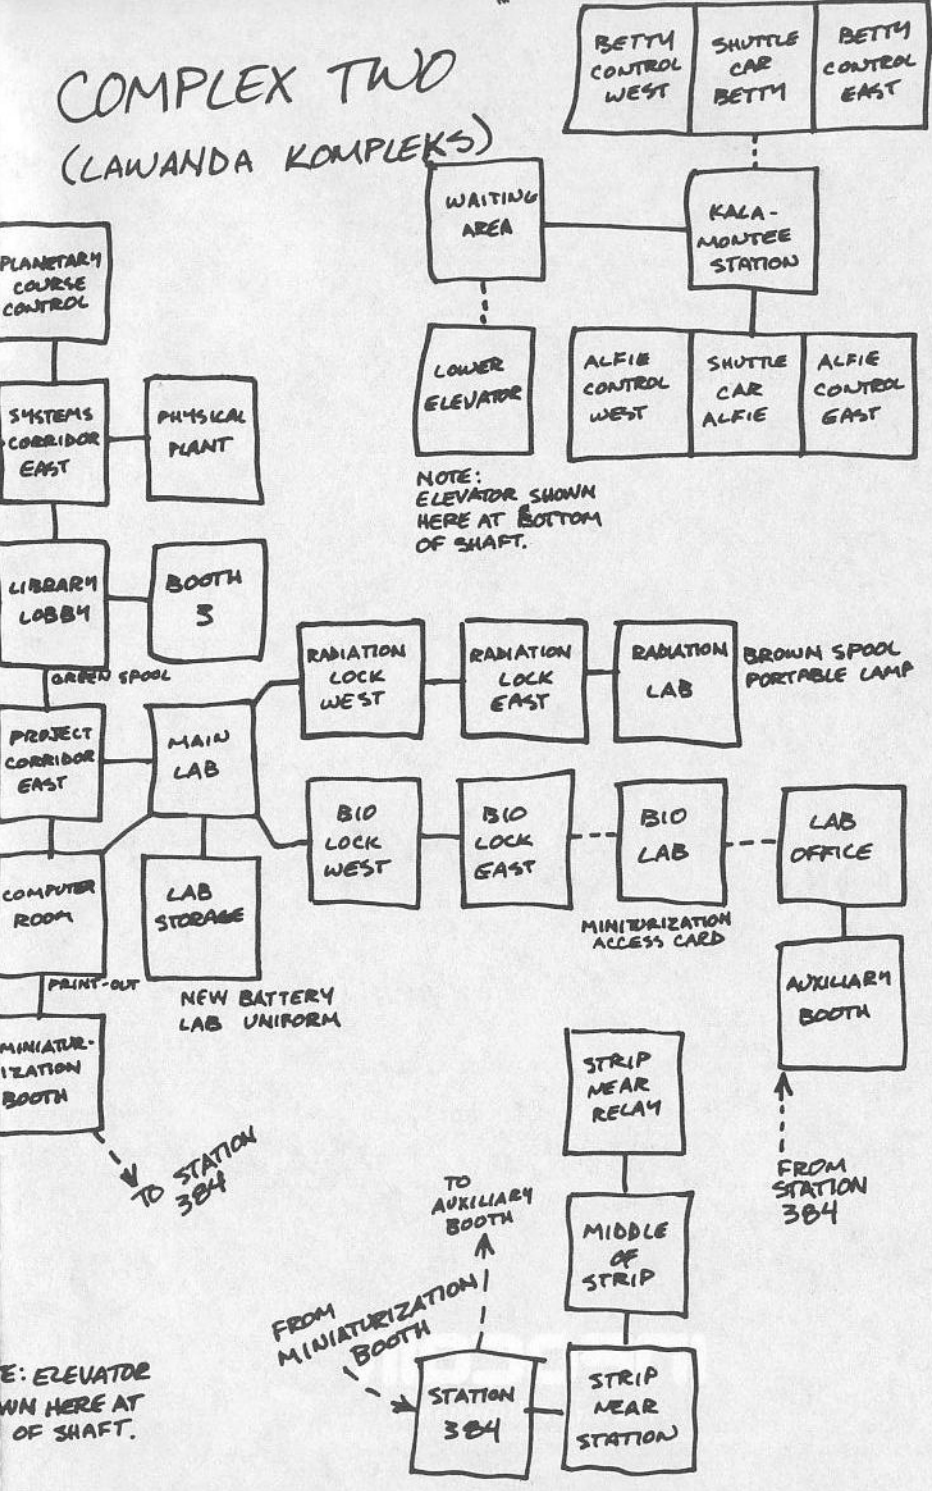 COMPLEX TWO
(LAWANDA KOMPLEKS)
BETTY
CONTROL
WEST
SHUTTLE
CAR
BETTY
BETTY
CONTROL
EAST
WAITING
AREA
KALA-
MONTEE
STATION
LOWER
ELEVATOR
ALFIE
CONTROL
WEST
SHUTTLE
CAR
ALFIE
ALFIE
CONTROL
EAST
NOTE:
ELEVATOR SHOWN
HERE AT BOTTOM
OF SHAFT.
PLANETARY
COURSE
CONTROL
SYSTEMS
CORRIDOR
EAST
PHYSICAL
PLANT
LIBRARY
LOBBY
BOOTH
3
GREEN SPOOL
RADIATION
LOCK
WEST
RADIATION
LOCK
EAST
RADIATION
LAB
BROWN SPOOL
PORTABLE LAMP
PROJECT
CORRIDOR
EAST
MAIN
LAB
BIO
LOCK
WEST
BIO
LOCK
EAST
BIO
LAB
LAB
OFFICE
MINITURIZATION
ACCESS CARD
COMPUTER
ROOM
LAB
STORAGE
PRINT-OUT
NEW BATTERY
LAB UNIFORM
AUXILIARY
BOOTH
MINIATUR-
IZATION
BOOTH
TO STATION
384
STRIP
NEAR
RELAY
FROM
STATION
384
TO
AUXILIARY
BOOTH
MIDDLE
OF
STRIP
FROM
MINIATURIZATION
BOOTH
STATION
384
STRIP
NEAR
STATION
E: ELEVATOR
WN HERE AT
OF SHAFT.